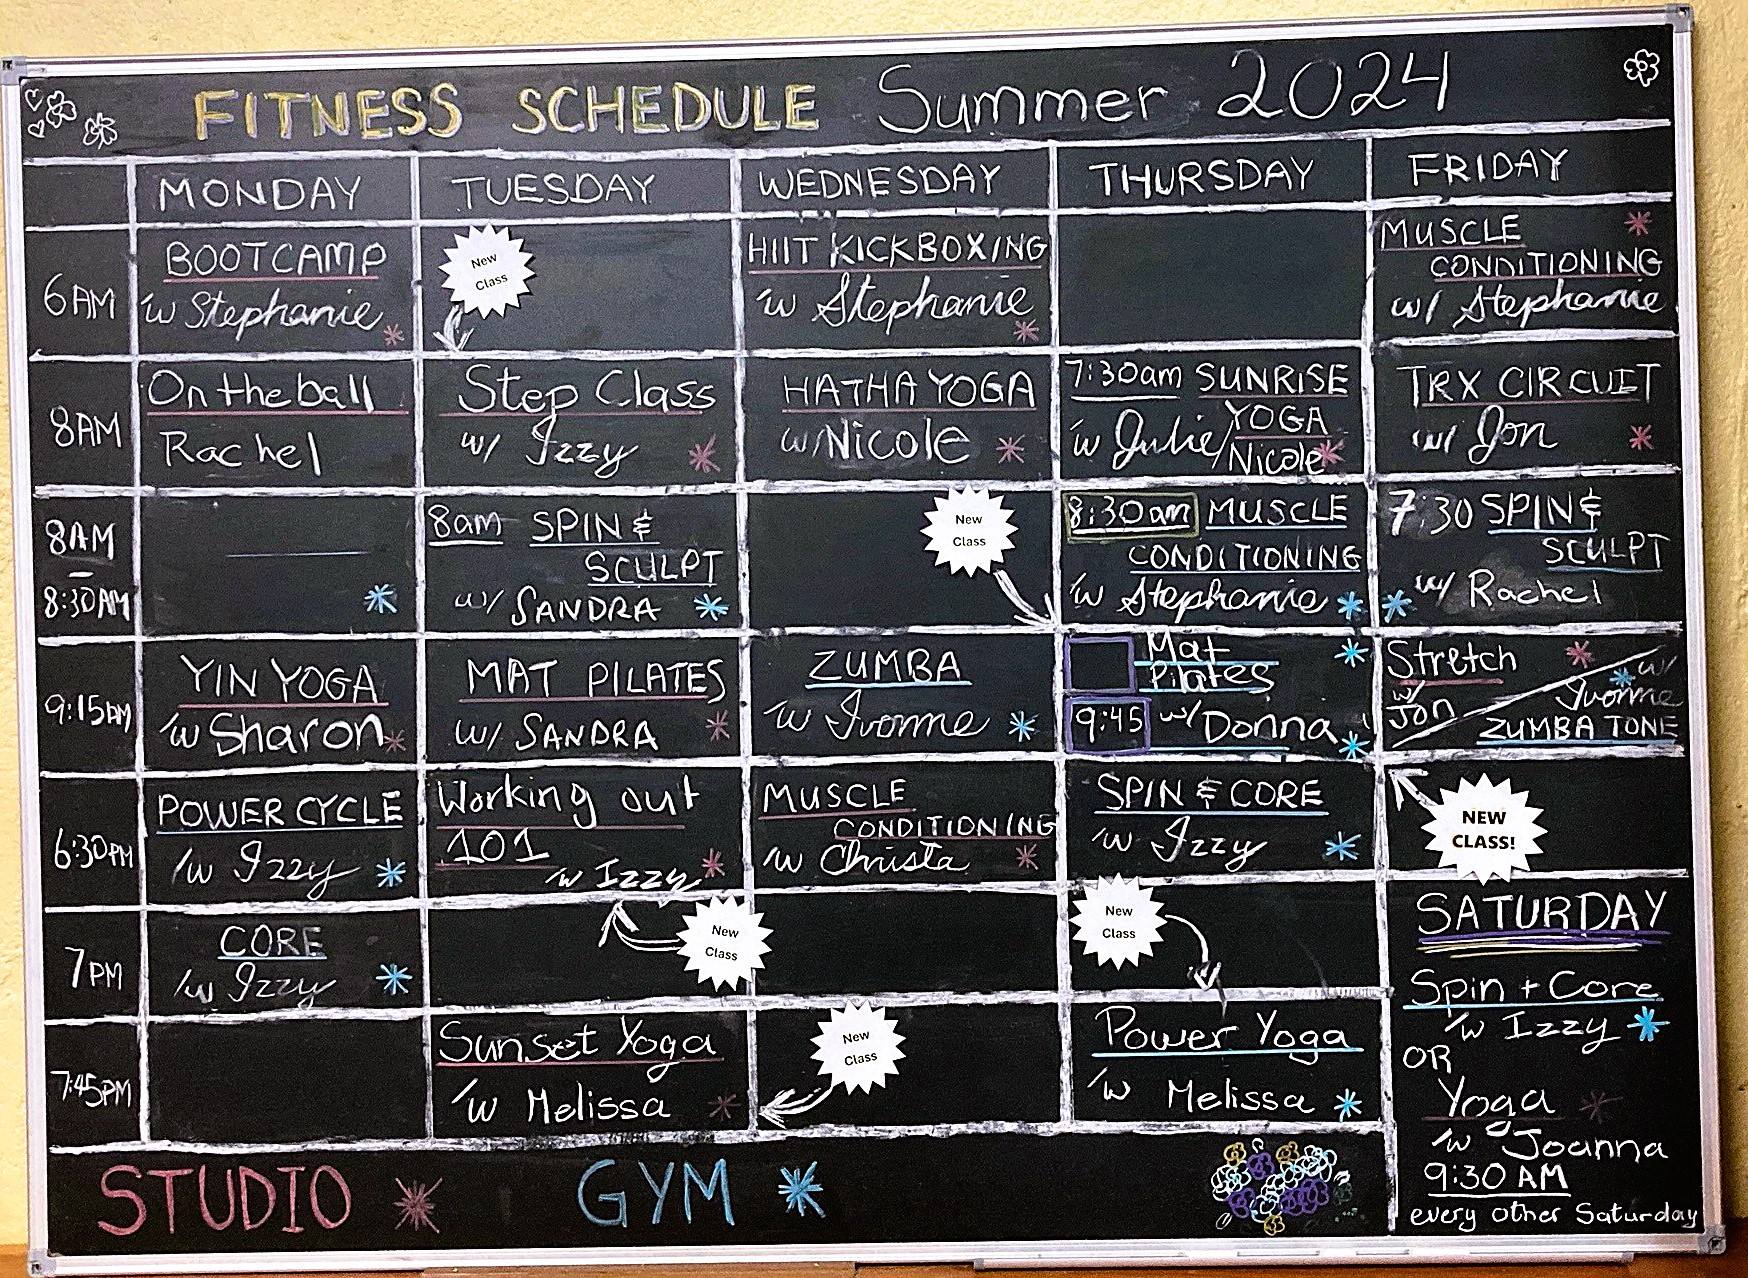 FITNESS SCHEDULE Summer 2024
MONDAY TUESDAY WEDNESDAY THURSDAY FRIDAY
6AM
BOOTCAMP
w Stephanie
New
Class
HIIT KICKBOXING
w Stephanie
MUSCLE
CONDITIONING
w/ Stephanie
8AM
On the ball
Rachel
Step Class
w/ Izzy
HATHA YOGA
w/ Nicole
7:30am SUNRISE
YOGA
w Julie/
Nicole
TRX CIRCUIT
w/ Jon
8AM
-
8:30AM
8am SPIN &
SCULPT
w/ SANDRA
New
Class
8:30am MUSCLE
CONDITIONING
w Stephanie
7:30 SPIN &
SCULPT
w/ Rachel
9:15AM
YIN YOGA
w Sharon
MAT PILATES
w/ SANDRA
ZUMBA
w Ivonne
Mat
Pilates
9:45 w/ Donna
Stretch
w/
Jon
w/
Yvonne
ZUMBA TONE
6:30PM
POWER CYCLE
w Izzy
Working out
101
w Izzy
MUSCLE
CONDITIONING
w Christa
SPIN & CORE
w Izzy
NEW
CLASS!
7PM
CORE
w Izzy
New
Class
New
Class
7:45PM
Sunset Yoga
w Melissa
New
Class
Power Yoga
w Melissa
SATURDAY
Spin + Core
w Izzy
OR
Yoga
w Joanna
9:30 AM
every other Saturday
STUDIO GYM